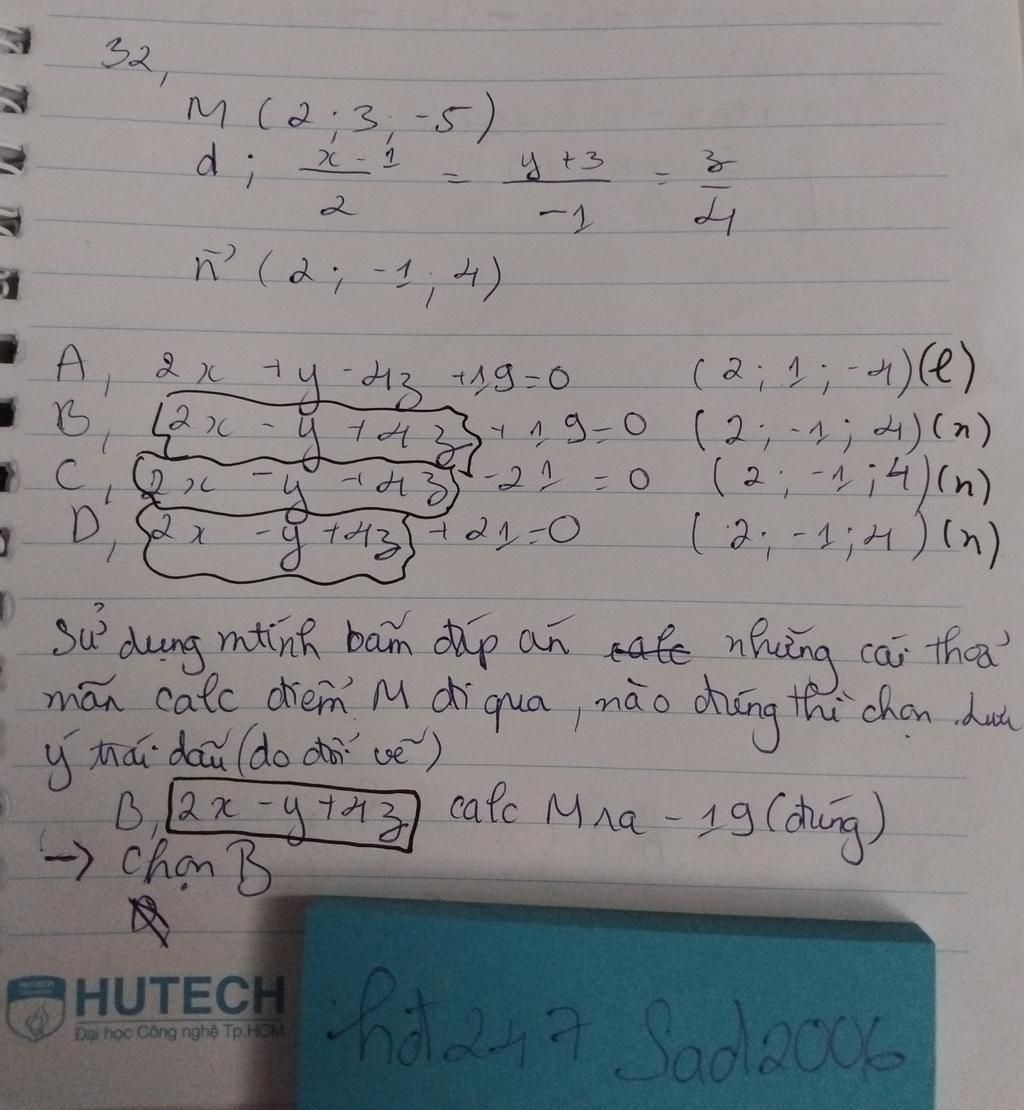 32,
M (2; 3; -5)
d; x - 1 / 2 = y + 3 / -1 = z / 4
n⃗ (2; -1; 4)
A, 2x + y - 4z + 19 = 0 (2; 1; -4) (l)
B, 2x - y + 4z + 19 = 0 (2; -1; 4) (n)
C, 2x - y + 4z - 21 = 0 (2; -1; 4) (n)
D, 2x - y + 4z + 21 = 0 (2; -1; 4) (n)
Sử dụng mtính bấm đáp án calc những cái thoả
mãn calc điểm M đi qua, nào đúng thì chọn. Lưu
ý trái dấu (do đổi vế)
B, 2x - y + 4z calc M ra - 19 (đúng)
→ Chọn B
HUTECH
Đại học Công nghệ Tp.HCM
hđ247 Sad2006